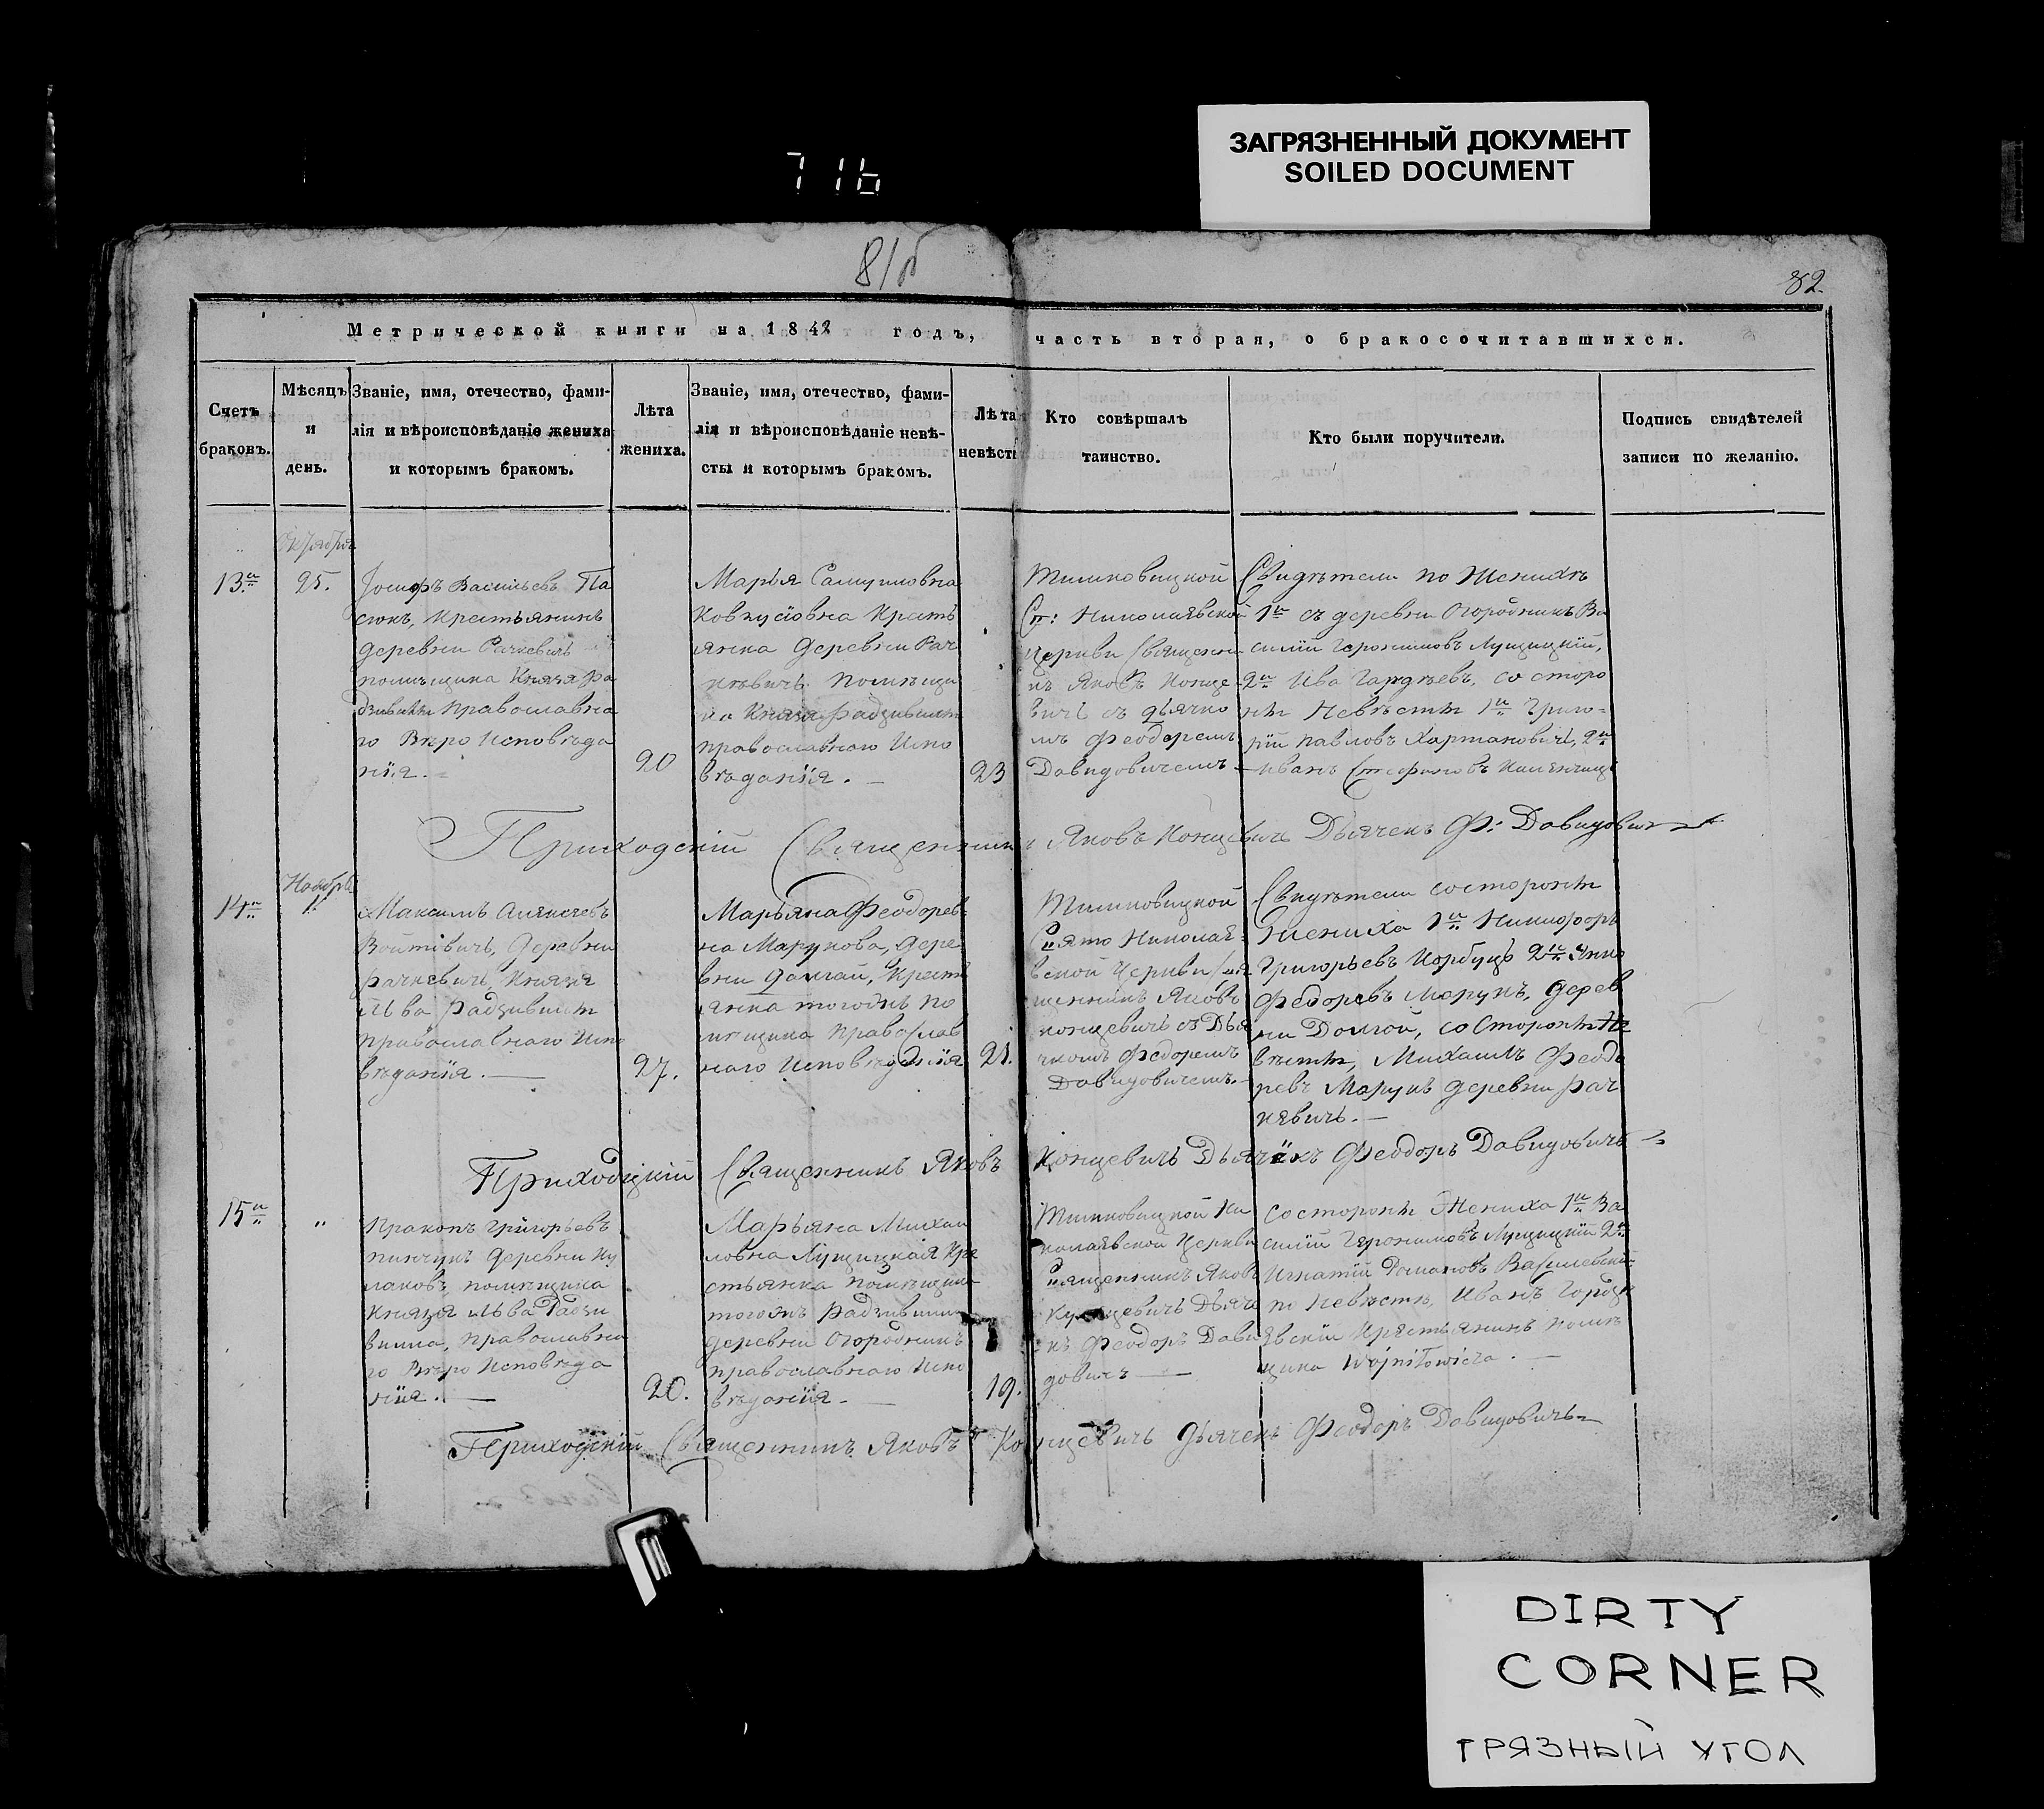 716
ЗАГРЯЗНЕННЫЙ ДОКУМЕНТ
SOILED DOCUMENT
81б
82
Метрической книги на 1842 годъ, часть вторая, о бракосочитавшихся.
Счетъ браковъ.
Мѣсяцъ и день.
Званіе, имя, отечество, фами-
лія и вѣроисповѣданіе жениха
и которымъ бракомъ.
Лѣта жениха.
Званіе, имя, отечество, фами-
лія и вѣроисповѣданіе невѣ-
сты и которымъ бракомъ.
Лѣта невѣсты
Кто совѣршалъ
таинство.
Кто были поручители.
Подпись свидѣтелей
записи по желанію.
Октября
13й
25.
Іосифъ Васильевъ Па
сюкъ, крестьянинъ
деревни Рачкевичъ
помѣщика Князя Ра
дзивила православна
го Вѣро Исповѣда
нія.
20
Марья Самуиловна
крестъ
янка деревни Рач
кѣвичъ помѣщи
ка Князя Радзивила
православнаго Испо
вѣданія. —
23
Тимковицкой
Св: Николаевской
Церкви Священни
къ Яковъ Конце
вичъ съ дьячко
мъ Феодоромъ
Давидовичемъ
Свидѣтели по Женихѣ
1й съ деревни Огородникъ Ва
силій Геронимовъ Лущицкій,
2й со сторо
ны Невѣсты 1й Григо-
рій Павловъ Харманович, 2й
Иванъ Стефановъ
Приходскій Священникъ Яковъ Концевичъ Дьячекъ Ф: Давидовичъ
14й
Ноября
1.
Максимъ Алексѣевъ
Войтовичъ, деревни
Рачкевичъ, Князя
Льва Радзивила
православнаго Испо
вѣданія. —
27.
Марьяна Феодоров
на Марукова, дере
вни Долгай, крестъ
янка тогожъ по
мѣщика православ
наго Исповѣданія
21.
Тимковицкой
Свято Николае
вской Церкви Свя
щенникъ Яковъ
Концевичъ съ Дья
чкомъ Федоромъ
Давидовичемъ.
Свидѣтели со стороны
Жениха 1й Никифоръ
Григорьевъ Корбутъ 2й Янко
Федоровъ Марукъ, дерев
ни Долгой, со Стороны Не
вѣсты, Михаилъ Феодо
ровъ Марукъ деревни Рач
кевичъ. —
Приходскій Священникъ Яковъ Концевичъ Дьячёкъ Феодоръ Давидовичъ
15й
"
Пракопъ Григорьевъ
Пинчукъ деревни Ку
лаковъ, помѣщика
Князя Льва Радзи
вила, православна
го Вѣро Исповѣда
нія. —
20.
Марьяна Михаи
ловна Лущицкая кре
стьянка помѣщика
тогожъ Радзивила
деревни Огородникъ
православнаго Испо
вѣданія. —
19.
Тимковицкой Ни
колаевской Церкви
Священникъ Яковъ
Концевичъ Дьяче
къ Феодоръ Дави
довичъ —
Со стороны Жениха 1й Ва
силій Геронимовъ Лущицкій 2й
Игнатій Романовъ Василевскій
по Невѣстѣ, Иванъ Городе
евскій Крестьянинъ помѣ
щика Wojniłowicza. —
Приходскій Священникъ Яковъ Концевичъ Дьячекъ Феодоръ Давидовичъ
DIRTY
CORNER
ГРЯЗНЫЙ УГОЛ